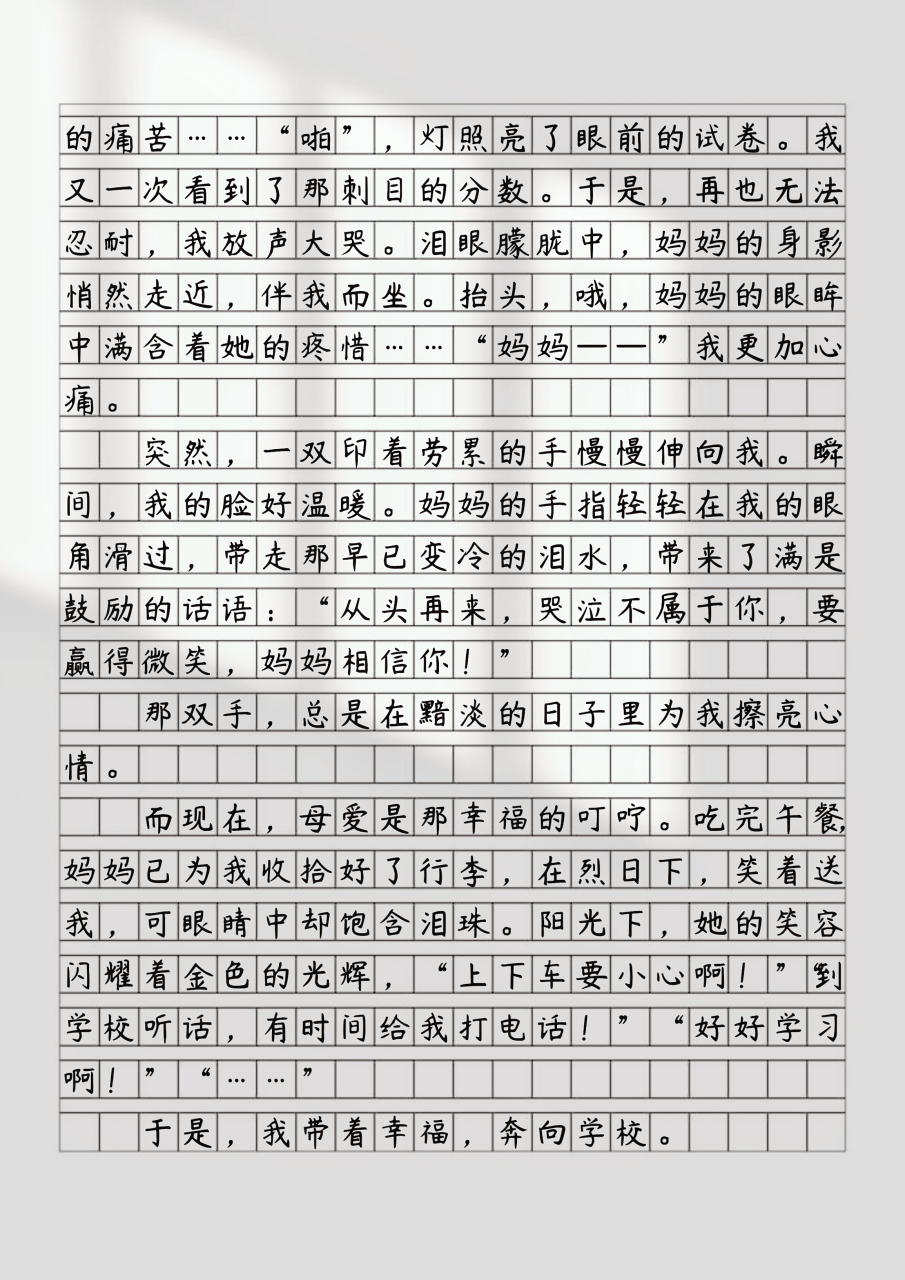 的痛苦……“啪”，灯照亮了眼前的试卷。我
又一次看到了那刺目的分数。于是，再也无法
忍耐，我放声大哭。泪眼朦胧中，妈妈的身影
悄然走近，伴我而坐。抬头，哦，妈妈的眼眸
中满含着她的疼惜……“妈妈——”我更加心
痛。
突然，一双印着劳累的手慢慢伸向我。瞬
间，我的脸好温暖。妈妈的手指轻轻在我的眼
角滑过，带走那早已变冷的泪水，带来了满是
鼓励的话语：“从头再来，哭泣不属于你，要
赢得微笑，妈妈相信你！”
那双手，总是在黯淡的日子里为我擦亮心
情。
而现在，母爱是那幸福的叮咛。吃完午餐，
妈妈已为我收拾好了行李，在烈日下，笑着送
我，可眼睛中却饱含泪珠。阳光下，她的笑容
闪耀着金色的光辉，“上下车要小心啊！”“到
学校听话，有时间给我打电话！”“好好学习
啊！”“……”
于是，我带着幸福，奔向学校。